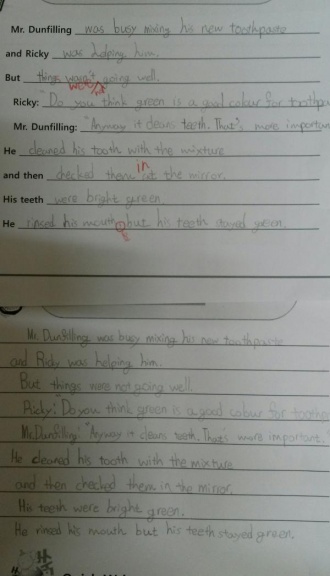 Mr. Dunfilling was busy mixing his new toothpaste
and Ricky was helping him.
But things wasn't going well.
were not
Ricky: "Do you think green is a good colour for toothpa
Mr. Dunfilling: "Anyway it cleans teeth. That's more importan
He cleaned his tooth with the mixture
in
and then checked them at the mirror.
His teeth were bright green.
He rinsed his mouth, but his teeth stayed green.
Mr. Dunfilling was busy mixing his new toothpaste
and Ricky was helping him.
But things were not going well.
Ricky: "Do you think green is a good colour for toothpa
Mr. Dunfilling: "Anyway it cleans teeth. That's more important."
He cleaned his tooth with the mixture
and then checked them in the mirror.
His teeth were bright green.
He rinsed his mouth but his teeth stayed green.